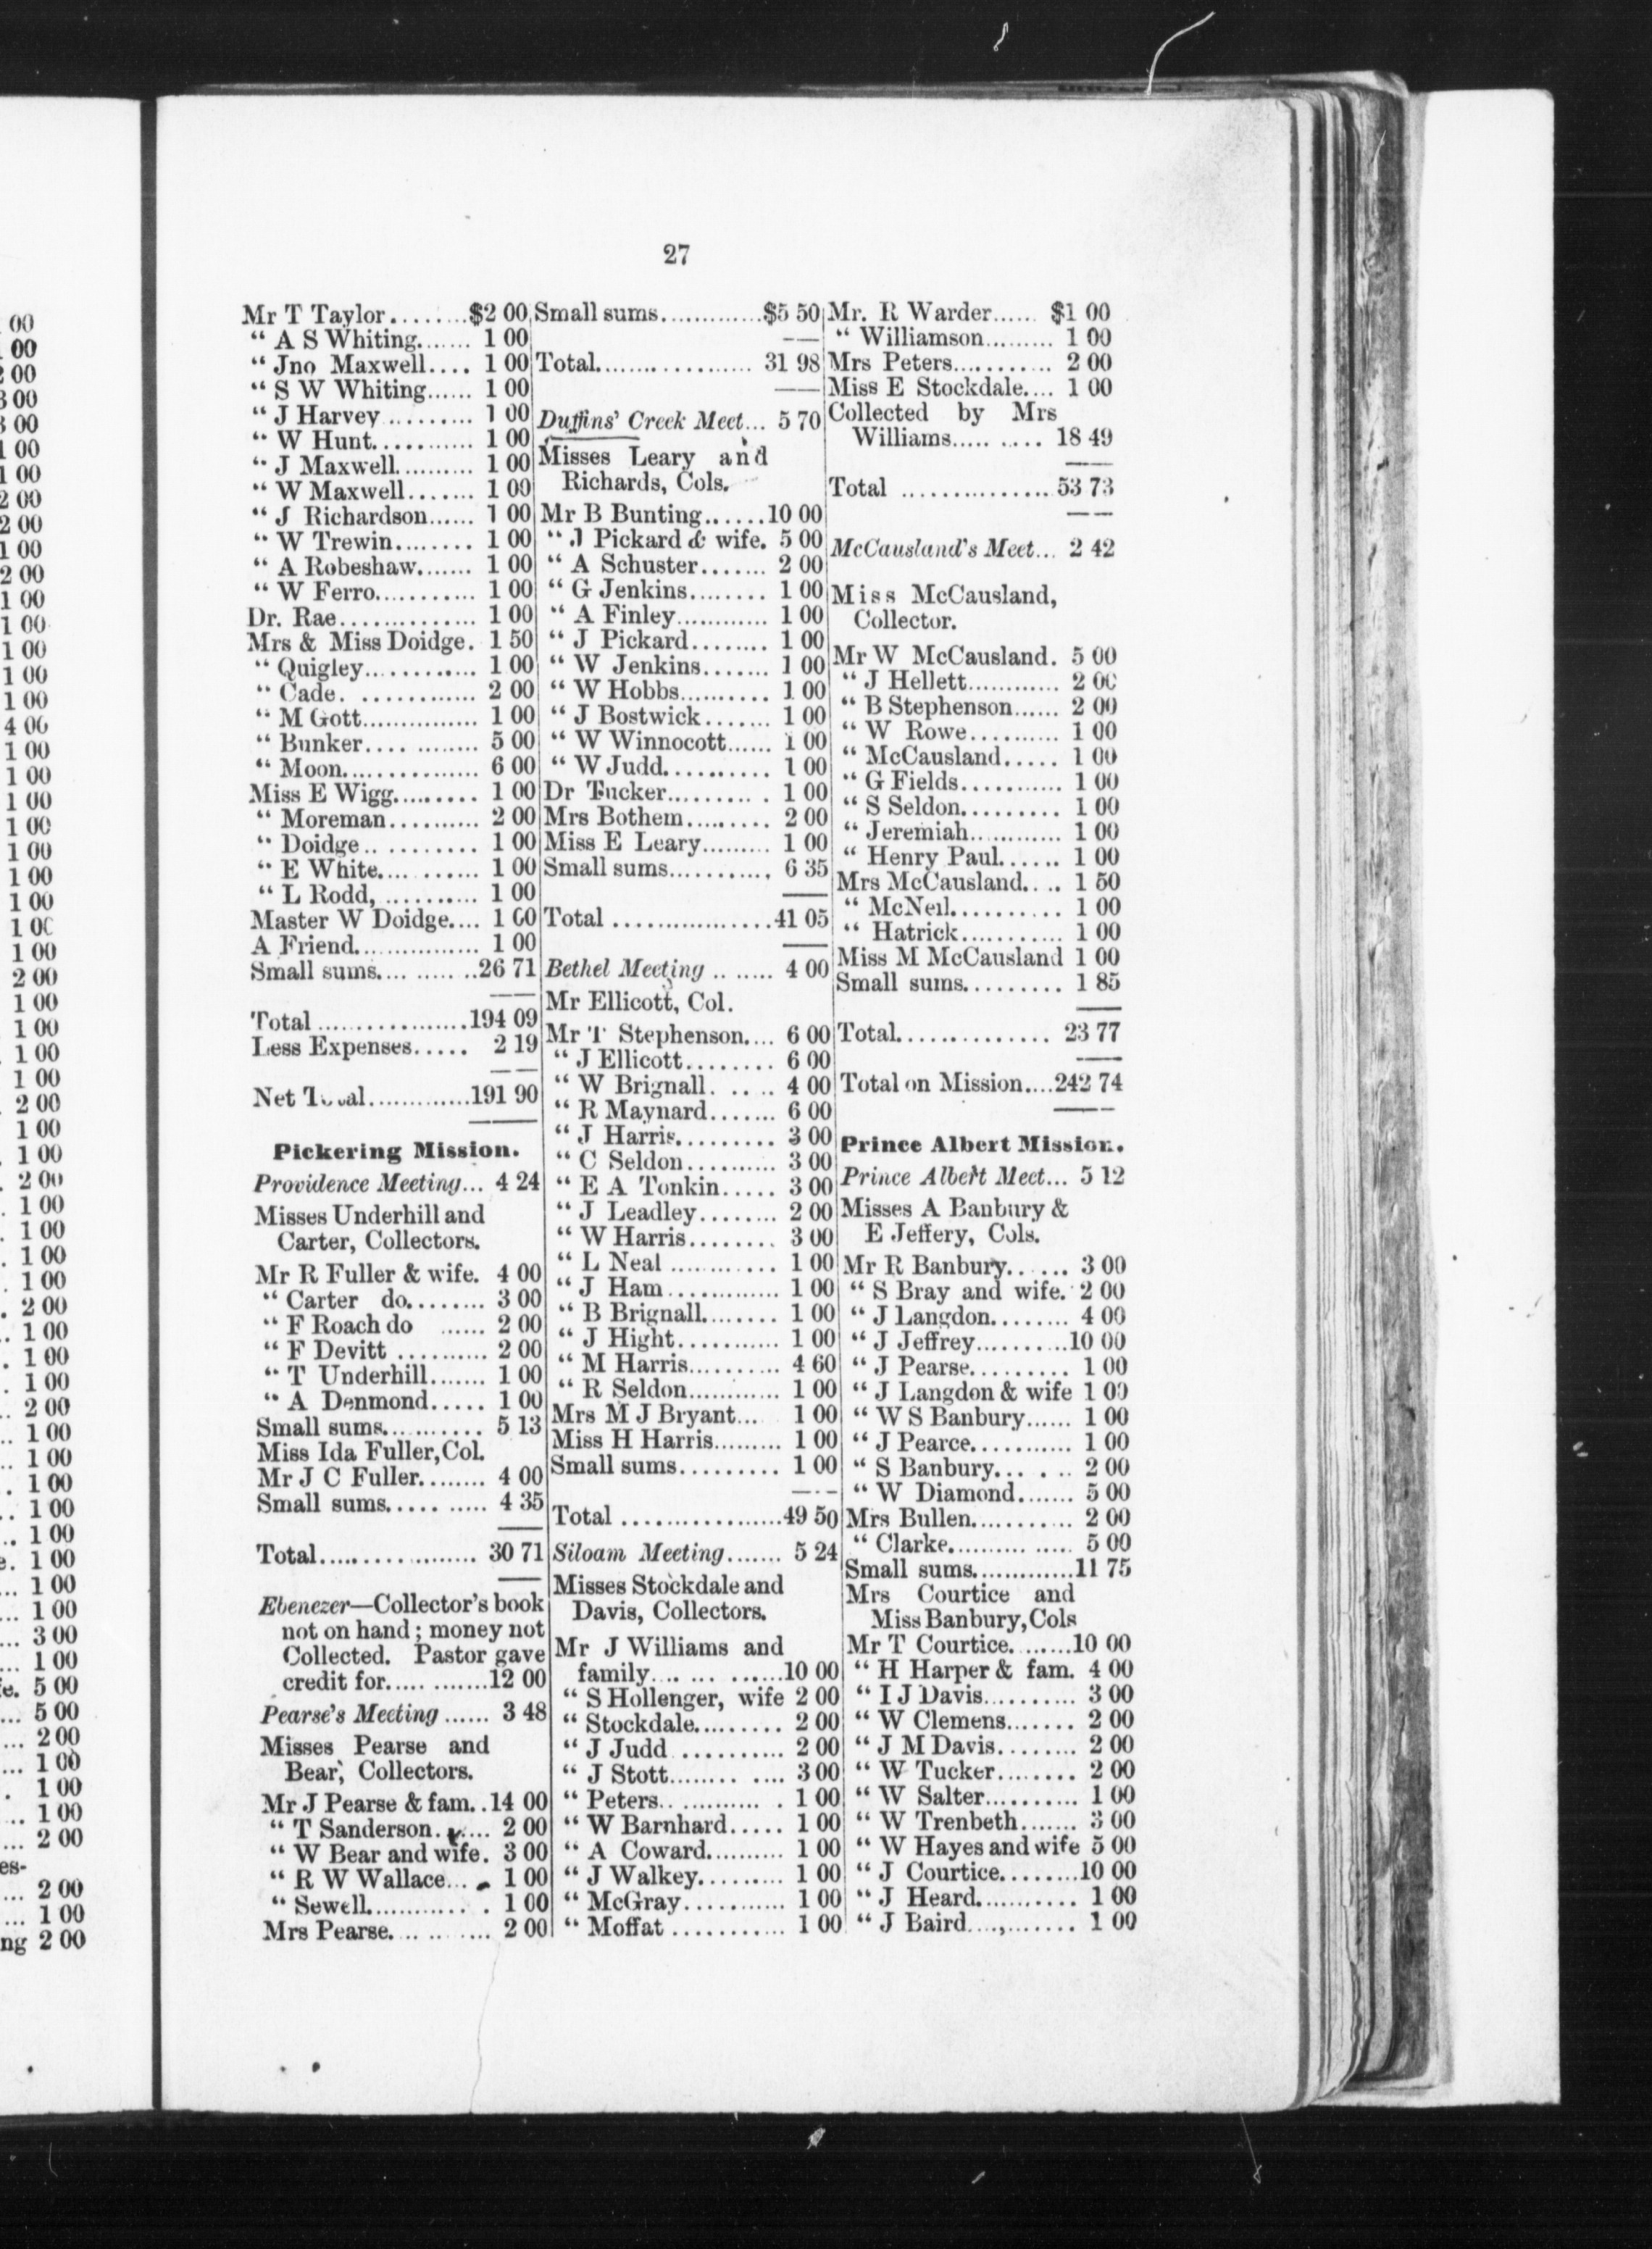 27
Mr T Taylor........$2 00
“ A S Whiting....... 1 00
“ Jno Maxwell.... 1 00
“ S W Whiting...... 1 00
“ J Harvey.......... 1 00
“ W Hunt........... 1 00
“ J Maxwell.......... 1 00
“ W Maxwell....... 1 00
“ J Richardson...... 1 00
“ W Trewin........ 1 00
“ A Robeshaw....... 1 00
“ W Ferro........... 1 00
Dr. Rae.............. 1 00
Mrs & Miss Doidge. 1 50
“ Quigley........... 1 00
“ Cade. ............ 2 00
“ M Gott............... 1 00
“ Bunker.... ........ 5 00
“ Moon................ 6 00
Miss E Wigg......... 1 00
“ Moreman.......... 2 00
“ Doidge.. .......... 1 00
“ E White.... ...... 1 00
“ L Rodd, .......... 1 00
Master W Doidge.... 1 00
A Friend............... 1 00
Small sums.... ........26 71
Total ..................194 09
Less Expenses..... 2 19
Net Total.............191 90
Pickering Mission.
Providence Meeting... 4 24
Misses Underhill and
Carter, Collectors.
Mr R Fuller & wife. 4 00
“ Carter do........ 3 00
“ F Roach do ...... 2 00
“ F Devitt .......... 2 00
“ T Underhill....... 1 00
“ A Denmond..... 1 00
Small sums........... 5 13
Miss Ida Fuller, Col.
Mr J C Fuller........ 4 00
Small sums..... ..... 4 35
Total................... 30 71
Ebenezer—Collector's book
not on hand; money not
Collected. Pastor gave
credit for..... .......12 00
Pearse's Meeting ...... 3 48
Misses Pearse and
Bear, Collectors.
Mr J Pearse & fam..14 00
“ T Sanderson...... 2 00
“ W Bear and wife. 3 00
“ R W Wallace... . 1 00
“ Sewell............ . 1 00
Mrs Pearse.... ....... 2 00
Small sums.............$5 50
Total................... 31 98
Duffins' Creek Meet... 5 70
Misses Leary and
Richards, Cols.
Mr B Bunting......10 00
“ J Pickard & wife. 5 00
“ A Schuster....... 2 00
“ G Jenkins........ 1 00
“ A Finley............ 1 00
“ J Pickard........ 1 00
“ W Jenkins....... 1 00
“ W Hobbs.......... 1 00
“ J Bostwick....... 1 00
“ W Winnocott...... 1 00
“ W Judd........... 1 00
Dr Tucker.......... . 1 00
Mrs Bothem......... 2 00
Miss E Leary......... 1 00
Small sums........... 6 35
Total .................41 05
Bethel Meeting .. ...... 4 00
Mr Ellicott, Col.
Mr T Stephenson.... 6 00
“ J Ellicott........ 6 00
“ W Brignall. ..... 4 00
“ R Maynard....... 6 00
“ J Harris.......... 3 00
“ C Seldon........... 3 00
“ E A Tonkin..... 3 00
“ J Leadley........ 2 00
“ W Harris........ 3 00
“ L Neal ........... 1 00
“ J Ham............. 1 00
“ B Brignall........ 1 00
“ J Hight........... 1 00
“ M Harris.......... 4 60
“ R Seldon............ 1 00
Mrs M J Bryant... 1 00
Miss H Harris......... 1 00
Small sums.......... 1 00
Total .................49 50
Siloam Meeting....... 5 24
Misses Stockdale and
Davis, Collectors.
Mr J Williams and
family.... ... ......10 00
“ S Hollenger, wife 2 00
“ Stockdale......... 2 00
“ J Judd ........... 2 00
“ J Stott........ .... 3 00
“ Peters.. .......... . 1 00
“ W Barnhard..... 1 00
“ A Coward.......... 1 00
“ J Walkey.......... 1 00
“ McGray............ 1 00
“ Moffat ............ 1 00
Mr. R Warder...... $1 00
“ Williamson......... 1 00
Mrs Peters............ 2 00
Miss E Stockdale.... 1 00
Collected by Mrs
Williams..... ..... 18 49
Total ................53 73
McCausland's Meet... 2 42
Miss McCausland,
Collector.
Mr W McCausland. 5 00
“ J Hellett............ 2 00
“ B Stephenson...... 2 00
“ W Rowe.......... 1 00
“ McCausland..... 1 00
“ G Fields........... 1 00
“ S Seldon.......... 1 00
“ Jeremiah........... 1 00
“ Henry Paul...... 1 00
Mrs McCausland.... 1 50
“ McNeil........... 1 00
“ Hatrick........... 1 00
Miss M McCausland 1 00
Small sums.......... 1 85
Total................. 23 77
Total on Mission....242 74
Prince Albert Mission.
Prince Albert Meet... 5 12
Misses A Banbury &
E Jeffery, Cols.
Mr R Banbury...... 3 00
“ S Bray and wife. 2 00
“ J Langdon........ 4 00
“ J Jeffrey..........10 00
“ J Pearse.......... 1 00
“ J Langdon & wife 1 00
“ W S Banbury...... 1 00
“ J Pearce........... 1 00
“ S Banbury... . .. 2 00
“ W Diamond....... 5 00
Mrs Bullen........... 2 00
“ Clarke.......... ..... 5 00
Small sums.............11 75
Mrs Courtice and
Miss Banbury, Cols
Mr T Courtice. .......10 00
“ H Harper & fam. 4 00
“ I J Davis.......... 3 00
“ W Clemens....... 2 00
“ J M Davis........ 2 00
“ W Tucker........ 2 00
“ W Salter.......... 1 00
“ W Trenbeth....... 3 00
“ W Hayes and wife 5 00
“ J Courtice........10 00
“ J Heard........... 1 00
“ J Baird...,....... 1 00